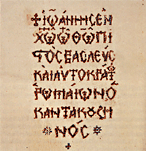 + ἸΩΆΝΝΗΣ ἘΝ
ΧΩ ΤΩ ΘΩ ΠΙ
ΣΤῸΣ ΒΑΣΙΛΕΥΣ
ΚΑΙ ΑΥΤΟΚΡΑΤ
ΡΩΜΑΙΩΝ Ο
ΚΑΝΤΑΚΟΥΖΗ
ΝΟΣ